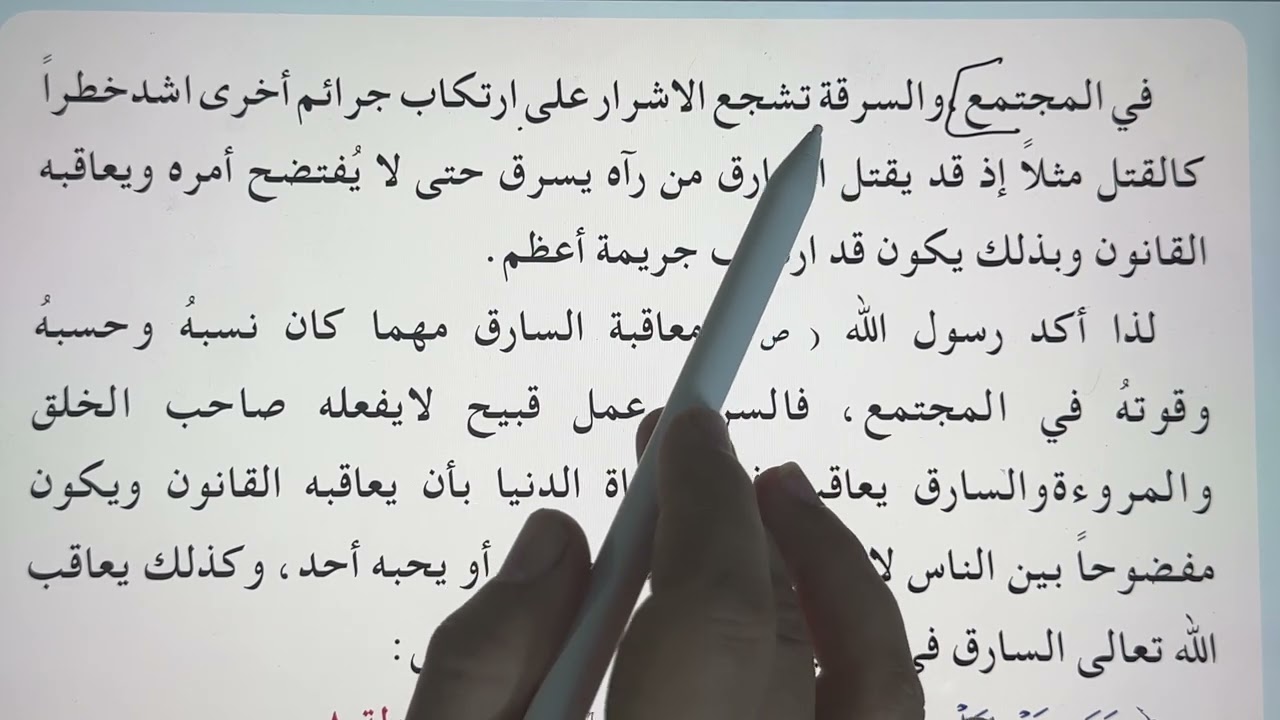 في المجتمع والسرقة تشجع الاشرار على ارتكاب جرائم أخرى اشد خطراً
كالقتل مثلاً إذ قد يقتل من رآه يسرق حتى لا يُفتضح أمره ويعاقبه
القانون وبذلك يكون قد جريمة أعظم.
لذا أكد رسول الله ( ص معاقبة السارق مهما كان نسبهُ وحسبهُ
وقوتهُ في المجتمع، عمل قبيح لايفعله صاحب الخلق
والمروءةوالسارق الدنيا بأن يعاقبه القانون ويكون
مفضوحاً بين الناس أو يحبه أحد، وكذلك يعاقب
الله تعالى السارق